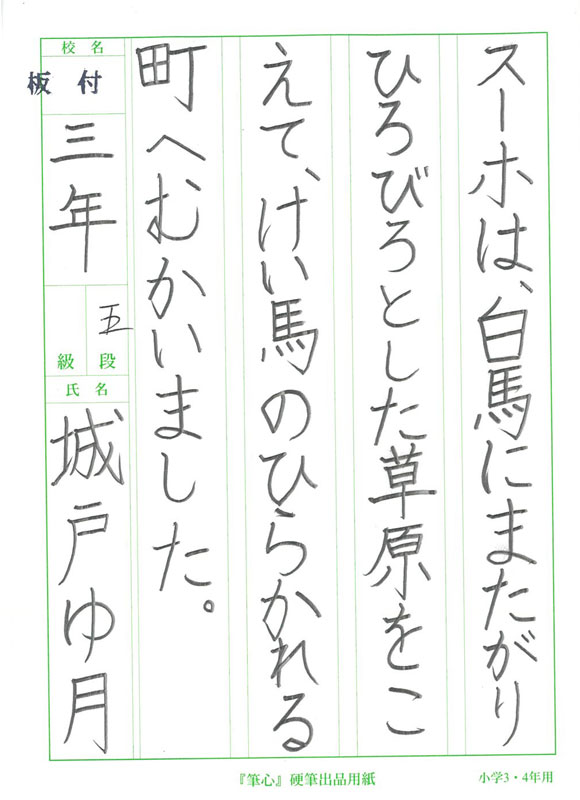 スーホは、白馬にまたがり
ひろびろとした草原をこ
えて、けい馬のひらかれる
町へむかいました。
校名
板付
三年
五
級 段
氏名
城戸ゆ月
『筆心』硬筆出品用紙
小学3・4年用